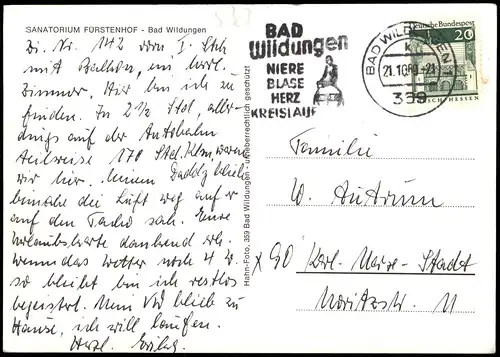 SANATORIUM FÜRSTENHOF - Bad Wildungen
Zi. Nr. 142 vom I. Stck
mit Balkon, ein
Zimmer. Hier bin ich zu
finden. In 2½ Std, aller-
dings auf der Autobahn
teilweise 170 Std.Klm, waren
wir hier. Meinem Daddy blieb
beinahe die Luft weg als er
auf den Tacho sah. Eure
Urlaubskarte dankend erh.
Wenn das Wetter noch 4 W.
so bleibt bin ich restlos
begeistert. Mein VW blieb zu
Hause, ich will laufen.
Herzl.
Hahn-Foto, 359 Bad Wildungen - Urheberrechtlich geschützt
BAD
Wildungen
NIERE
BLASE
HERZ
KREISLAUF
BAD WILDUNGEN
21.10.69-21
359
Deutsche Bundespost
20
HESSEN
Familie
W. Autrum
x 90 Karl-Marx-Stadt
Moritzstr. 11